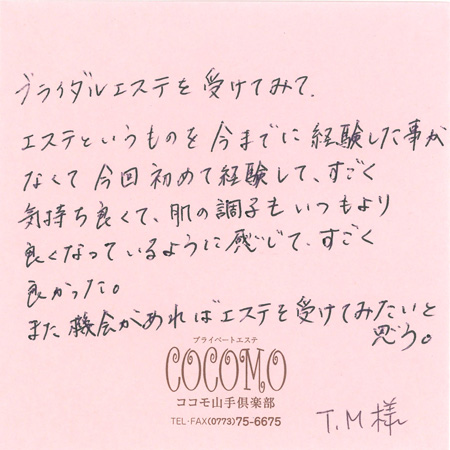 ブライダルエステを受けてみて、
エステというものを今までに経験した事が
なくて今回初めて経験して、すごく
気持ち良くて、肌の調子もいつもより
良くなっているように感じて、すごく
良かった。
また機会があればエステを受けてみたいと
思う。
プライベートエステ
COCOMO
ココモ山手倶楽部
TEL・FAX(0773)75-6675
T.M様